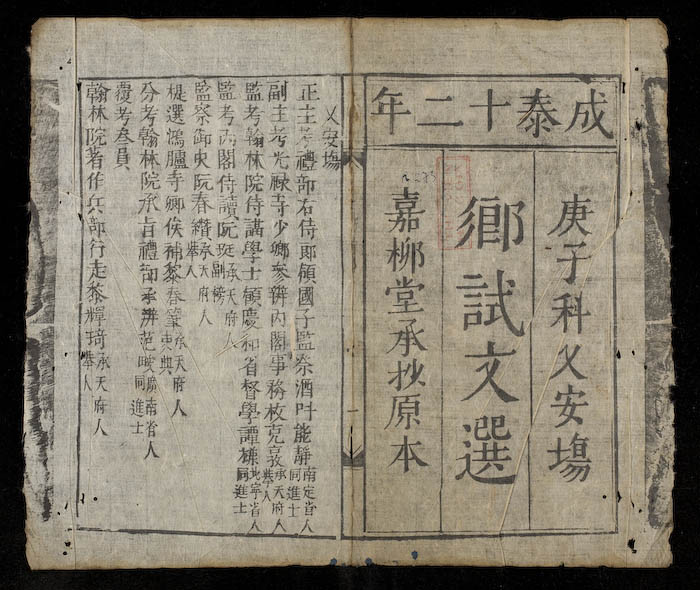 成泰十二年
庚子科乂安場
鄉試文選
嘉柳堂承抄原本
乂安場
正主考禮部右侍郎領國子監祭酒叶能靜南定省人同進士
副主考光祿寺少卿參辦內閣事務枚克敦承天府人舉人
監考翰林院侍講學士領慶和省督學譚慊北寧省人同進士
監考內閣侍讀阮珽承天府人副榜
監察御史阮春承天府人舉人
提選鴻臚寺卿侯補黎春承天府人
分考翰林院承旨禮部承辦范晙廣南省人同進士
覆考叁員
翰林院著作兵部行走黎輝琦承天府人舉人